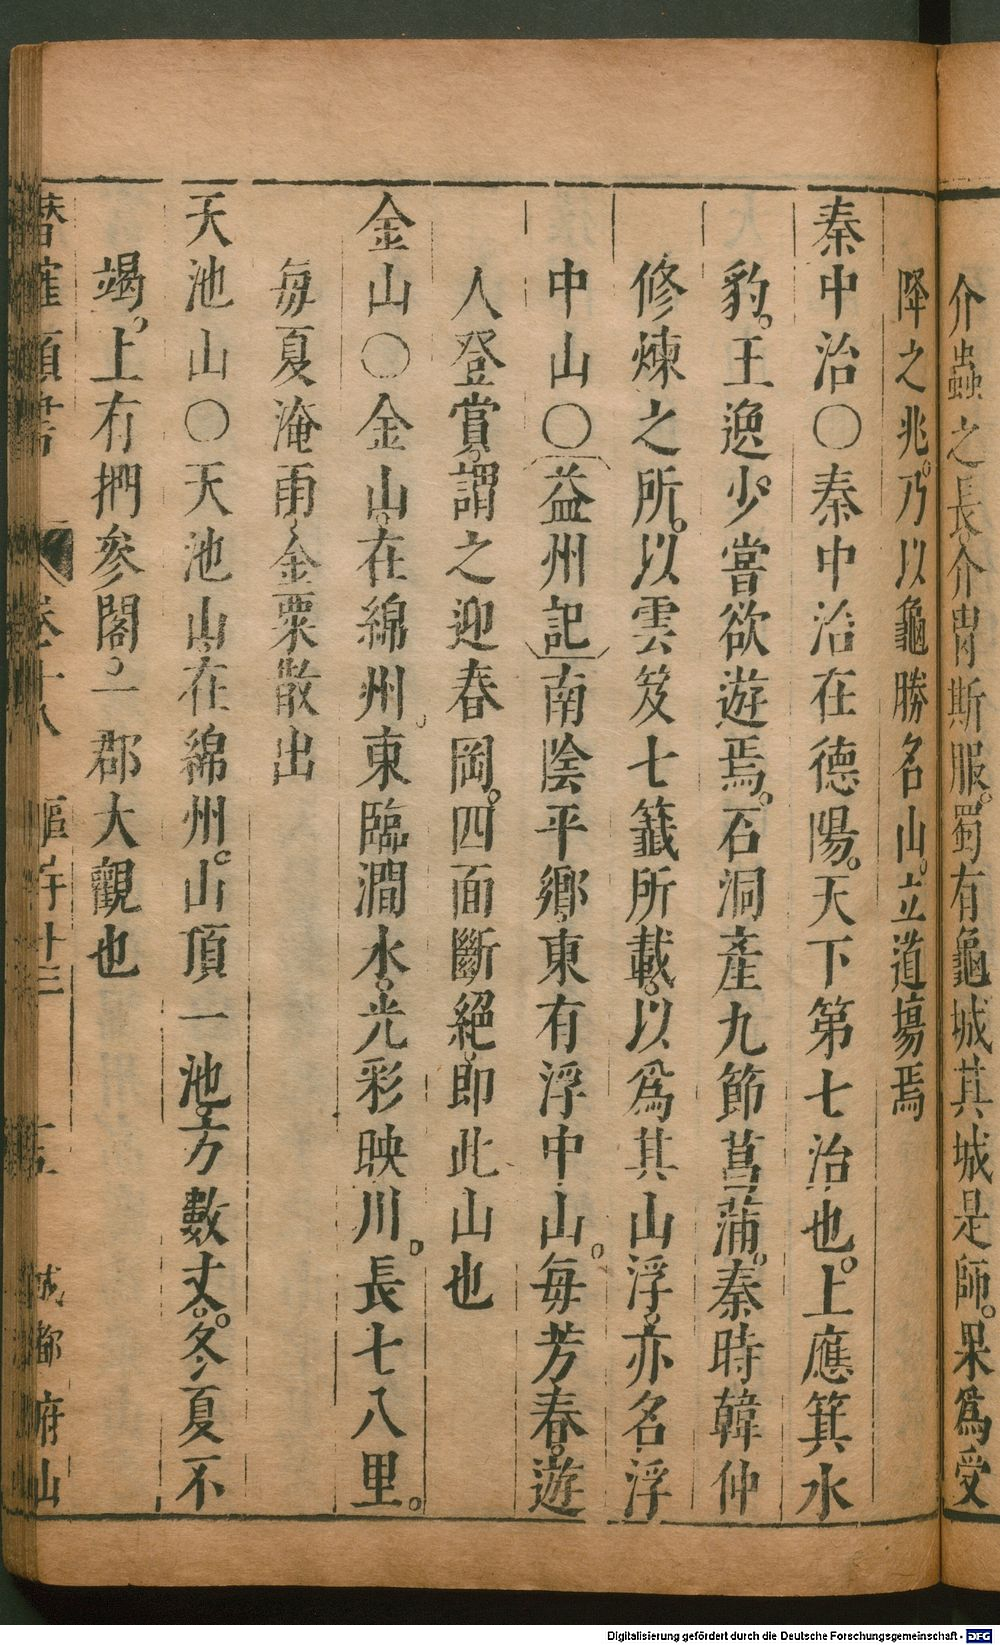 介蟲之長介胄斯服蜀有龜城其城是師果爲受
降之兆乃以龜勝名山立道場焉
秦中治〇秦中治在德陽天下第七治也上應箕水
豹王逸少嘗欲遊焉石洞產九節菖蒲秦時韓仲
修煉之所以雲笈七籤所載以爲其山浮亦名浮
中山〇益州記南陰平鄉東有浮中山每芳春遊
人登賞謂之迎春岡四面斷絕即此山也
金山〇金山在綿州東臨澗水光彩映川長七八里
每夏淹雨金粟散出
天池山〇天池山在綿州山頂一池方數丈冬夏不
竭上有捫參閣一郡大觀也
卷十八 成都府山
Digitalisierung gefördert durch die Deutsche Forschungsgemeinschaft - DFG